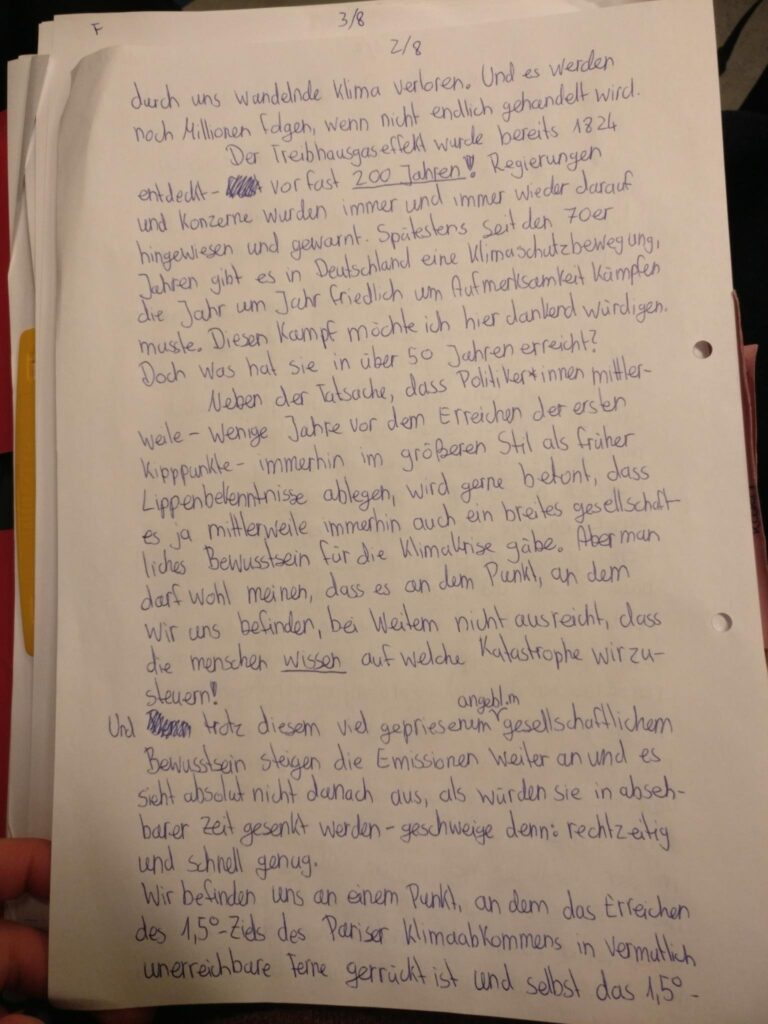 F
3/8
2/8
durch uns wandelnde Klima verloren. Und es werden
noch Millionen folgen, wenn nicht endlich gehandelt wird.
Der Treibhausgaseffekt wurde bereits 1824
entdeckt - vor fast 200 Jahren! Regierungen
und Konzerne wurden immer und immer wieder darauf
hingewiesen und gewarnt. Spätestens seit den 70er
Jahren gibt es in Deutschland eine Klimaschutzbewegung,
die Jahr um Jahr friedlich um Aufmerksamkeit kämpfen
musste. Diesen Kampf möchte ich hier dankend würdigen.
Doch was hat sie in über 50 Jahren erreicht?
Neben der Tatsache, dass Politiker*innen mittler-
weile - wenige Jahre vor dem Erreichen der ersten
Kipppunkte - immerhin im größeren Stil als früher
Lippenbekenntnisse ablegen, wird gerne betont, dass
es ja mittlerweile immerhin auch ein breites gesellschaft-
liches Bewusstsein für die Klimakrise gäbe. Aber man
darf wohl meinen, dass es an dem Punkt, an dem
wir uns befinden, bei Weitem nicht ausreicht, dass
die menschen wissen auf welche Katastrophe wir zu-
steuern!
angebl.m
Und trotz diesem viel gepriesenum gesellschaftlichem
Bewusstsein steigen die Emissionen weiter an und es
sieht absolut nicht danach aus, als würden sie in abseh-
barer Zeit gesenkt werden - geschweige denn: rechtzeitig
und schnell genug.
Wir befinden uns an einem Punkt, an dem das Erreichen
des 1,5°-Ziels des Pariser Klimaabkommens in vermutlich
unerreichbare Ferne gerrückt ist und selbst das 1,5°-